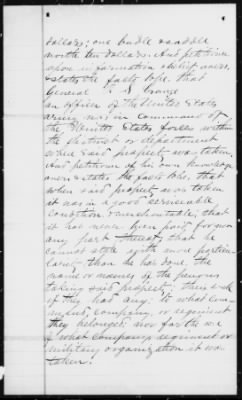 dollars; one bridle saddle
worth ten dollars. And petitioner
upon information & belief avers,
& states the facts to be, that
General
an officer of the United States
army was in command of
the United States forces within
the district or department
when said property was taken.
And petitioner of his own knowledge
avers & states the facts to be, that
when said property was taken
it was in a good serviceable
condition & merchantable, that
it has never been paid for nor
any part thereof; that he
cannot state with more particu
larity than he has done the
name or names of the persons
taking said property; their rank
if they had any; to what com
mand, company, or regiment
they belonged; nor for the use
of what company, regiment or
military organization it was
taken.